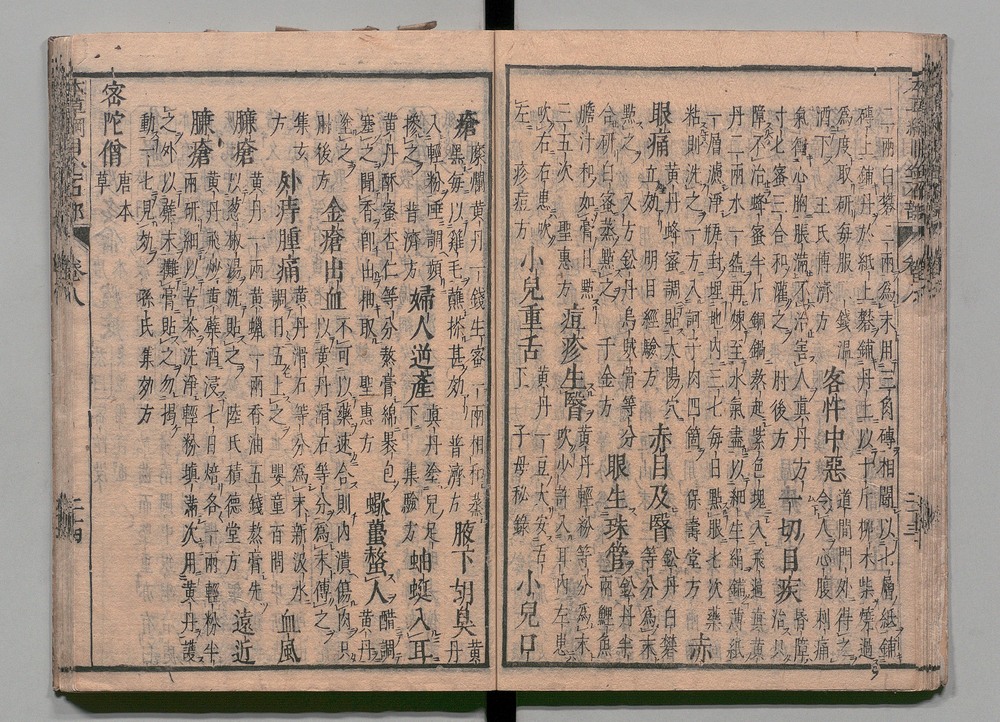 二兩白礬一兩爲末用三角磚相鬭以七層紙鋪
磚上鋪丹於紙上礬鋪丹上以十斤柳木柴焚過
爲度取研每服二錢温
酒下 王氏博濟方 客忤中惡 道間門外得之
令人心腹刺痛
氣衝心胸脹滿不治害人真丹方
寸七蜜三合和灌之 肘後方 一切目疾
障不治蜂蜜半斤銅鍋熬起紫色塊入飛過真黃
丹二兩水一鍾再煉至水氣盡以細生絹鋪薄紙
一層濾淨瓶封埋地內三七每日點眼七次藥
粘則洗之一方入訶子肉四箇 保壽堂方 赤
眼痛 黃丹蜂蜜調貼太陽穴
立效 明目經驗方 赤目及瞖 鉛丹白礬
等分爲末
點之 又方鉛丹烏賊骨等分
合研白蜜蒸點之 千金方 眼生珠管 鉛丹半
兩鯉魚
膽汁和如膏日點
三五次 聖惠方 痘疹生瞖 黃丹輕粉等分爲末
吹少許入耳內左患
吹右右患吹
左 疹痘方 小兒重舌 黃丹一豆大安
舌下 子母秘錄 小兒口
瘡 糜爛黃丹一錢生蜜一兩相和蒸
黑每以雞毛蘸搽甚效 普濟方 腋下胡臭 黃
丹
入輕粉唾調頻
摻之 普濟方 婦人逆產 真丹塗兒足
下 集驗方 蚰蜒入耳
黃丹酥蜜杏仁等分熬膏綿裹包
塞之聞香卽出抽取 聖惠方 蠍蠆螫人 醋調
黃丹
塗之
肘後方 金瘡出血 不可以藥速合則內潰傷肉只
以黃丹滑石等分爲末傅之
集玄
方 外痔腫痛 黃丹滑石等分爲末新汲水
調日五上之 嬰童百問 血風
臁瘡 黃丹一兩黃蠟一兩香油五錢熬膏先
以葱椒湯洗貼之 陸氏積德堂方 遠近
臁瘡 黃丹飛炒黃蘗酒浸七日焙各一兩輕粉半
兩研細以苦茶洗淨輕粉填滿次用黃丹護
之外以蘗末攤膏貼之勿揭
動一七見效 孫氏集効方
密陀僧 唐本
草
二十四